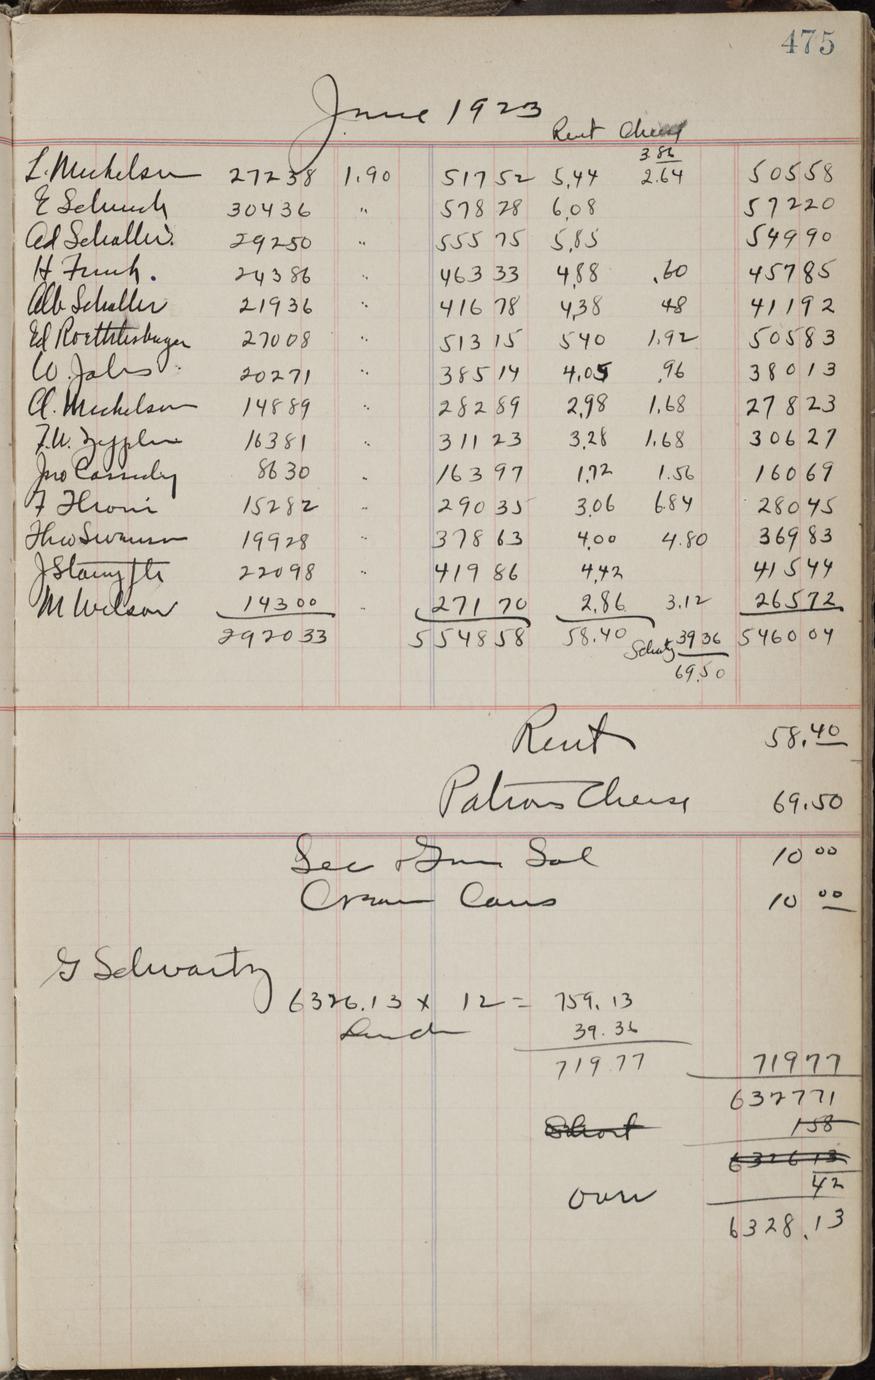 475
June 1923
Rent Cheese
3.86
L. Mickelson 27238 1.90 517 52 5.44 2.64 505 58
E Schuch 30436 " 578 28 6.08 572 20
Ad Schaller 29250 " 555 75 5.85 549 90
H Funk. 24386 " 463 33 4.88 .60 457 85
Alb Schaller 21936 " 416 78 4.38 48 411 92
Ed Roethlisburger 27008 " 513 15 5 40 1.92 505 83
W. Jahs 20271 " 385 14 4.05 .96 380 13
A. Mickelson 14889 " 282 89 2.98 1.68 278 23
F.W. 16381 " 311 23 3.28 1.68 306 27
Jno Cassidy 8630 " 163 97 1.72 1.56 160 69
F 15282 " 290 35 3.06 6.84 280 45
Theo Swanson 19928 " 378 63 4.00 4.80 369 83
J Stampfli 22098 " 419 86 4.42 415 44
M Wilson 14300 " 271 70 2.86 3.12 265 72
292033 5548 58 58.40 Schatz 39 36 5460 04
69.50
Rent 58.40
Patrons Cheese 69.50
Sec Sal 10 00
Cream Cans 10 00
G Schwartz
6326.13 x 12 = 759.13
39.36
719 77 719 77
6327 71
Short 1 58
6326 13
Over 42
6328.13